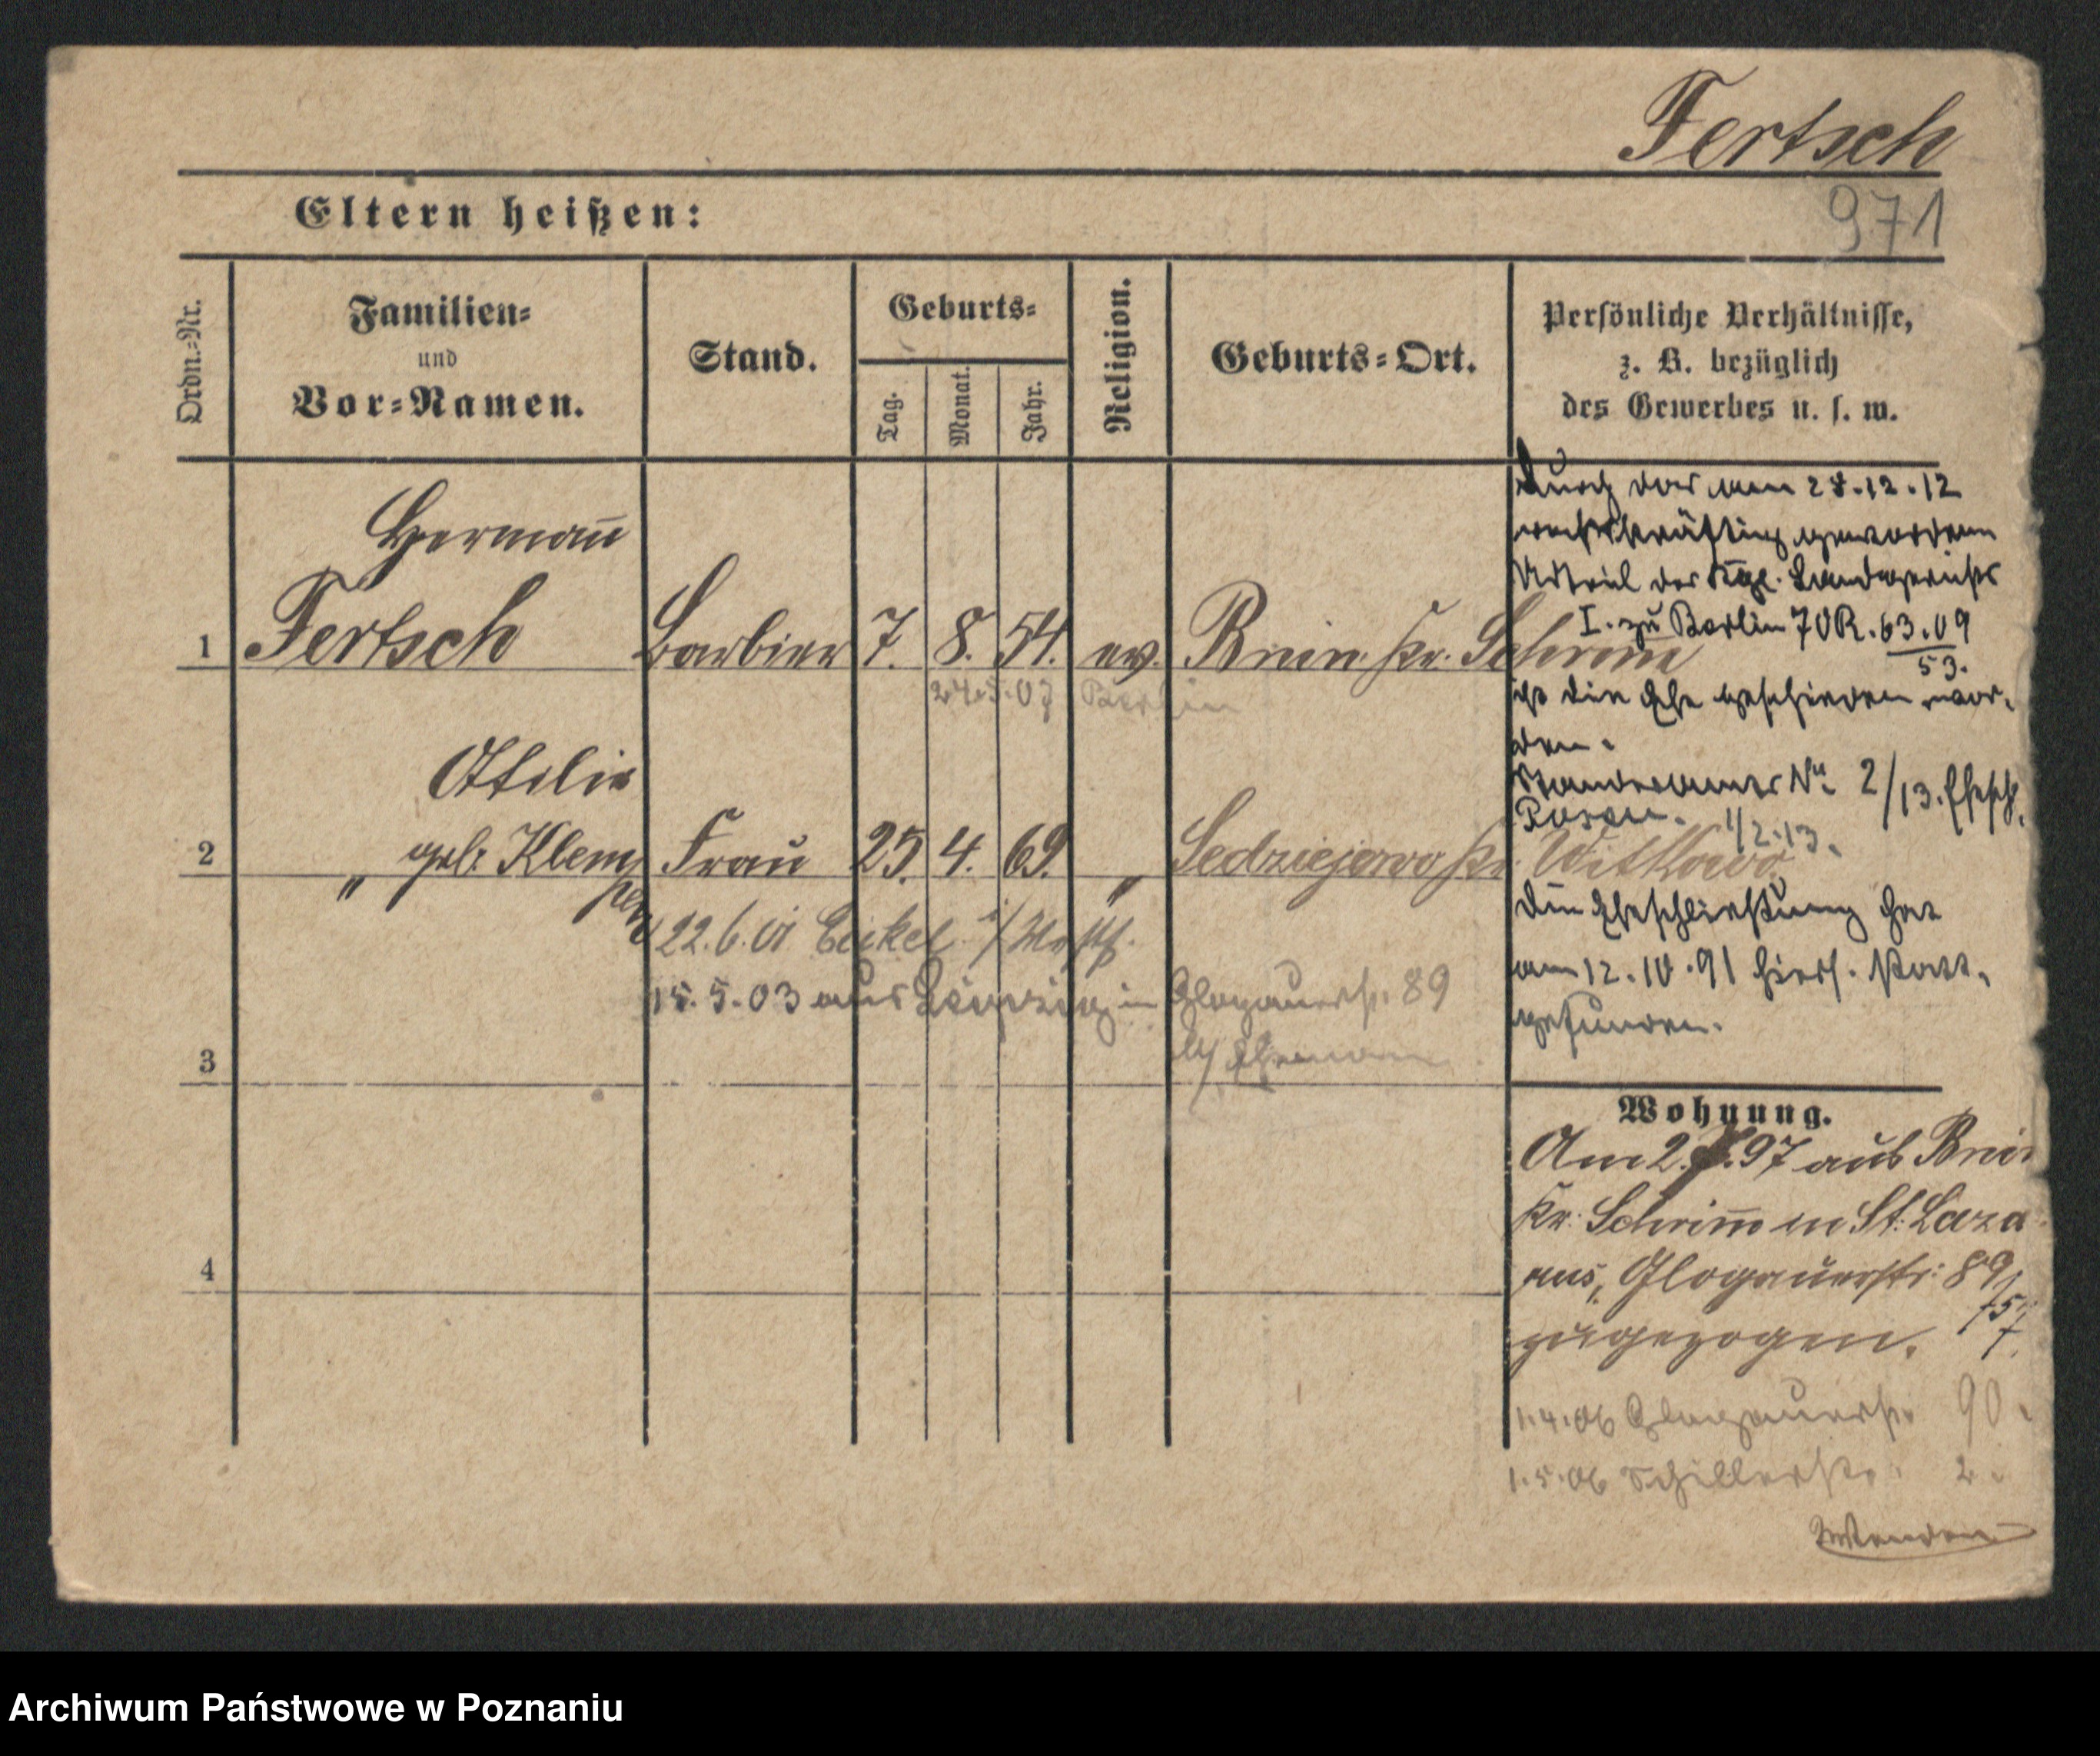 Fertsch
971
Eltern heißen:
Ordn.-Nr.
Familien-
und
Vor-Namen.
Stand.
Geburts-
Tag.
Monat.
Jahr.
Religion.
Geburts-Ort.
Persönliche Verhältnisse,
z. B. bezüglich
des Gewerbes u. s. w.
Herman̄
1 Fertsch Barbier 7. 8. 54. ev. Bnin Kr. Schrim̄
24.5.07 Berlin
Otilie
2 " geb. Klem Frau 25. 4. 69. " Sedziejewo Kr. Witkowo
22.6.01 Eickel i/Westf.
15.5.03 aus Danzig in Glogauerstr. 89
b/ Ehemann
3
4
Durch das am 28.12.12
rechtskräftig gewordene
Urteil des Kgl. Landgerichts
I. zu Berlin 70R.63.09
53.
ist die Ehe geschieden wor-
den.
Standesamt No. 2/13.
Posen. 1/2.13.
Die Eheschließung hat
am 12.10.91 hiers. statt-
gefunden.
Wohnung.
Am 2. 97 aus Bnin
Kr. Schrim̄ in St. Laza
rus, Glogauerstr. 89
zugezogen.
1.4.06 Glogauerstr. 90.
1.5.06 Schillerstr. 2.
Wenden
Archiwum Państwowe w Poznaniu